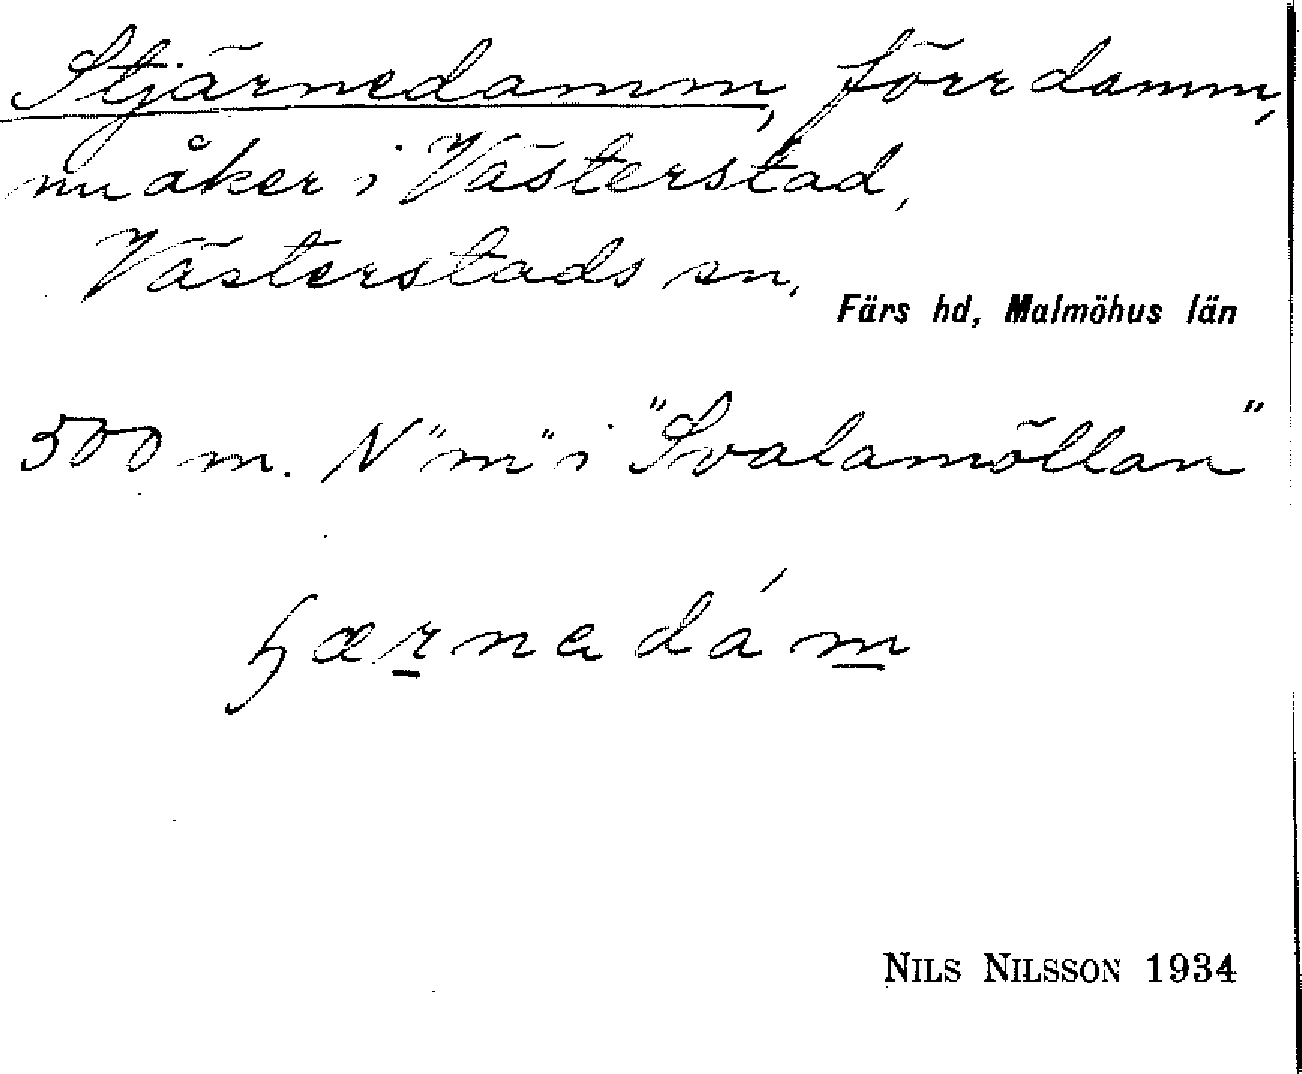 Stjärnedamm, förr damm,
nu åker i Västerstad,
Västerstads sn.
Färs hd, Malmöhus län
500 m. N "m" i "Svalamöllan"
ꜧærnadám
NILS NILSSON 1934